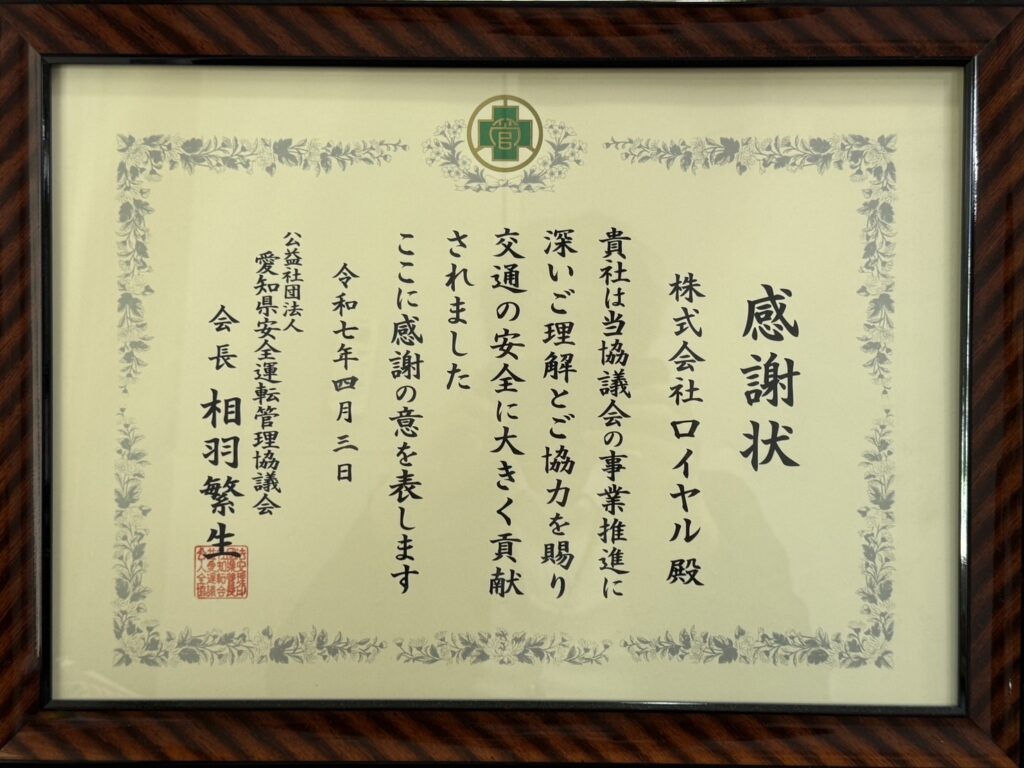 管
感謝状
株式会社ロイヤル殿
貴社は当協議会の事業推進に
深いご理解とご協力を賜り
交通の安全に大きく貢献
されました
ここに感謝の意を表します
令和七年四月三日
公益社団法人
愛知県安全運転管理協議会
会長 相羽繁生